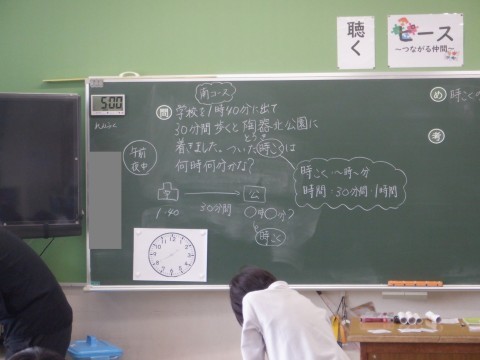 聴く
ピース
~つながる仲間~
5:00
南コース
問 学校を1時40分に出て
30分間歩くと陶器北公園に
着きました。ついた時こくは
何時何分かな?
午前
学 → 公
1:40 30分間 ○時○分?
時こく
時こく・〜時〜分
時間・30分間・1時間
め 時こくの
考